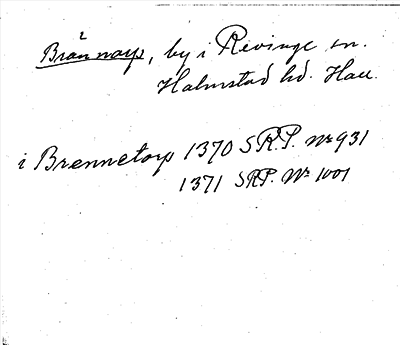 Brännarp, by i Revinge sn.
Halmstad hd. Hall.
i Brennetorp 1370 SRP. No 931
1371 SRP. No 1001